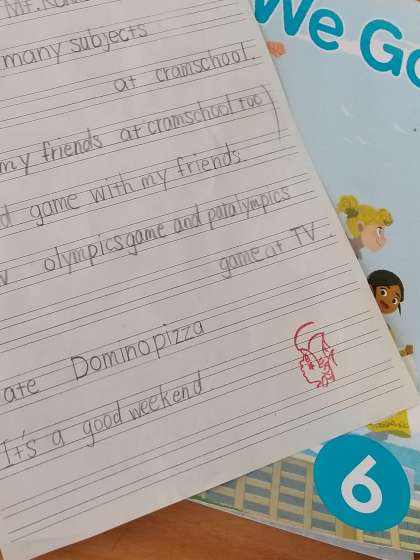 many subjects
at cramschool.
my friends at cramschool too)
game with my friends.
olympicsgame and paralympics
game at TV.
ate Dominopizza
It's a good weekend
We Go
6